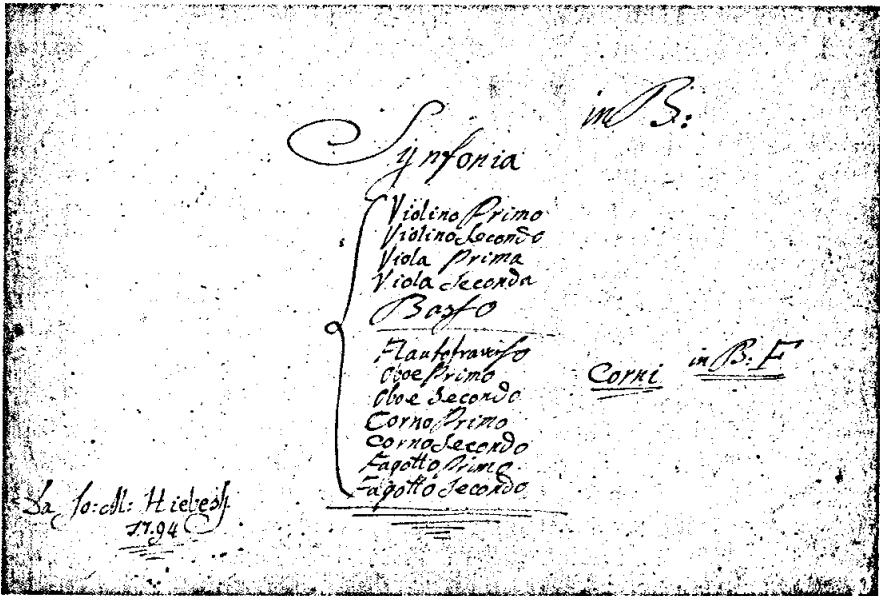 in B:
Synfonia
Violino Primo
Violino Secondo
Viola Prima
Viola Seconda
Basso
Flauto traverso
Oboe Primo
Oboe Secondo
Corno Primo
Corno Secondo
Fagotto Primo
Fagotto Secondo
Corni in B: F
Da Jo: M: Hiebesch
1794